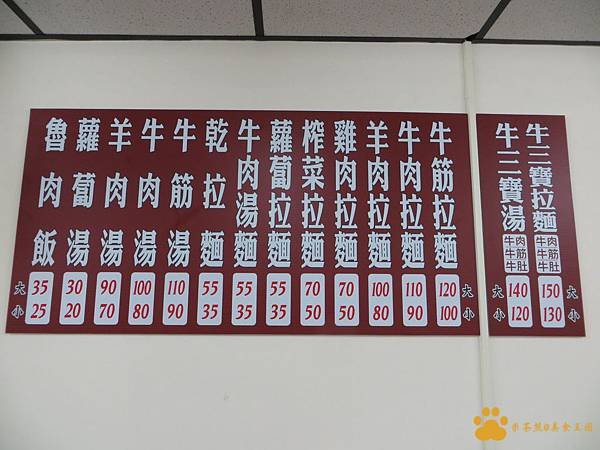 牛三寶拉麵 牛肉 牛筋 牛肚 150 130
牛三寶湯 牛肉 牛筋 牛肚 140 120
大 小
大 小
牛筋拉麵 120 100
牛肉拉麵 110 90
羊肉拉麵 100 80
雞肉拉麵 70 50
榨菜拉麵 70 50
蘿蔔拉麵 55 35
牛肉湯麵 55 35
乾拉麵 55 35
牛筋湯 110 90
牛肉湯 100 80
羊肉湯 90 70
蘿蔔湯 30 20
魯肉飯 35 25
大 小
大 小